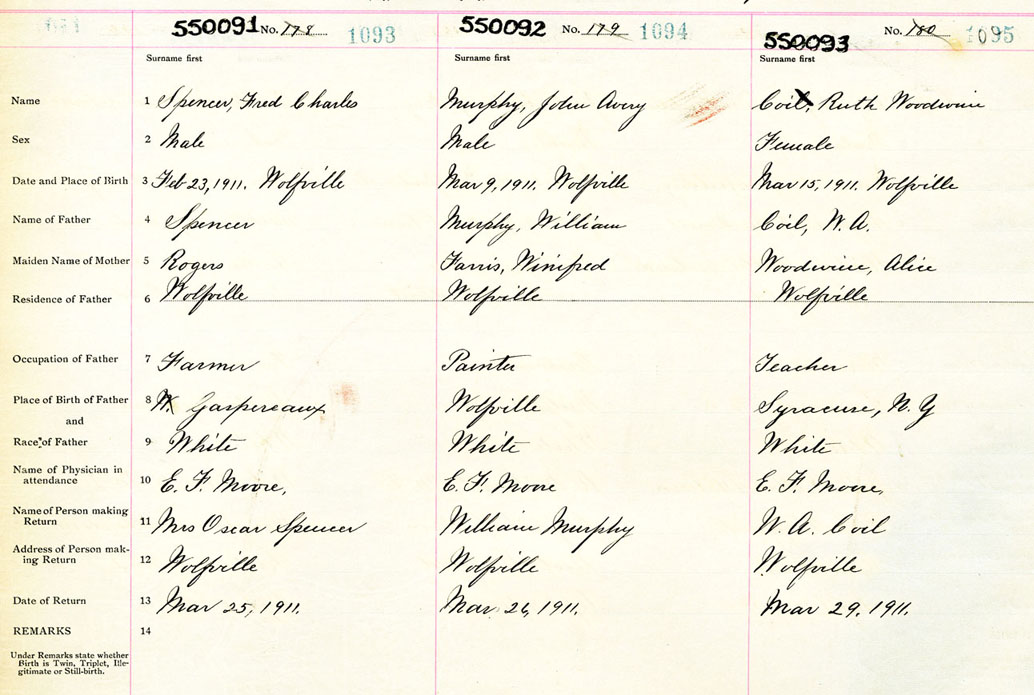 550091 No. 178 1093 550092 No. 179 1094 550093 No. 180 1095
Surname first Surname first Surname first
Name 1 Spencer, Fred Charles Murphy, John Avery Coil, Ruth Woodwine
Sex 2 Male Male Female
Date and Place of Birth 3 Feb 23, 1911. Wolfville Mar 9, 1911. Wolfville Mar 15, 1911. Wolfville
Name of Father 4 Spencer Murphy, William Coil, W. A.
Maiden Name of Mother 5 Rogers Farris, Winifred Woodwine, Alice
Residence of Father 6 Wolfville Wolfville Wolfville
Occupation of Father 7 Farmer Painter Teacher
Place of Birth of Father 8 Gaspereaux Wolfville Syracuse, N. Y
and
Race of Father 9 White White White
Name of Physician in
attendance 10 E. F. Moore, E. F. Moore E. F. Moore,
Name of Person making
Return 11 Mrs Oscar Spencer William Murphy W. A. Coil
Address of Person mak-
ing Return 12 Wolfville Wolfville Wolfville
Date of Return 13 Mar 25, 1911. Mar. 26, 1911. Mar 29. 1911.
REMARKS 14
Under Remarks state whether
Birth is Twin, Triplet, Ille-
gitimate or Still-birth.